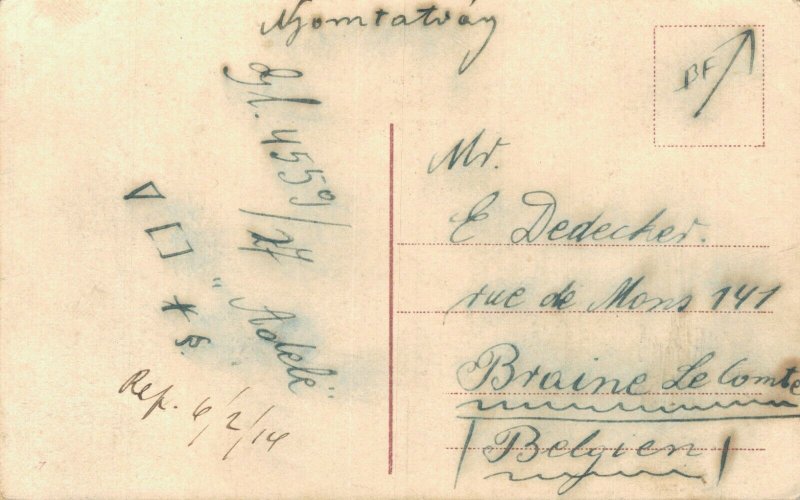 Nyomtatvány
Gl. 4559/27
"Adele"
Rep. 6/2/14
BF
Mr.
E Dedecker.
rue de Mons 141
Braine Le Comte
(Belgien)